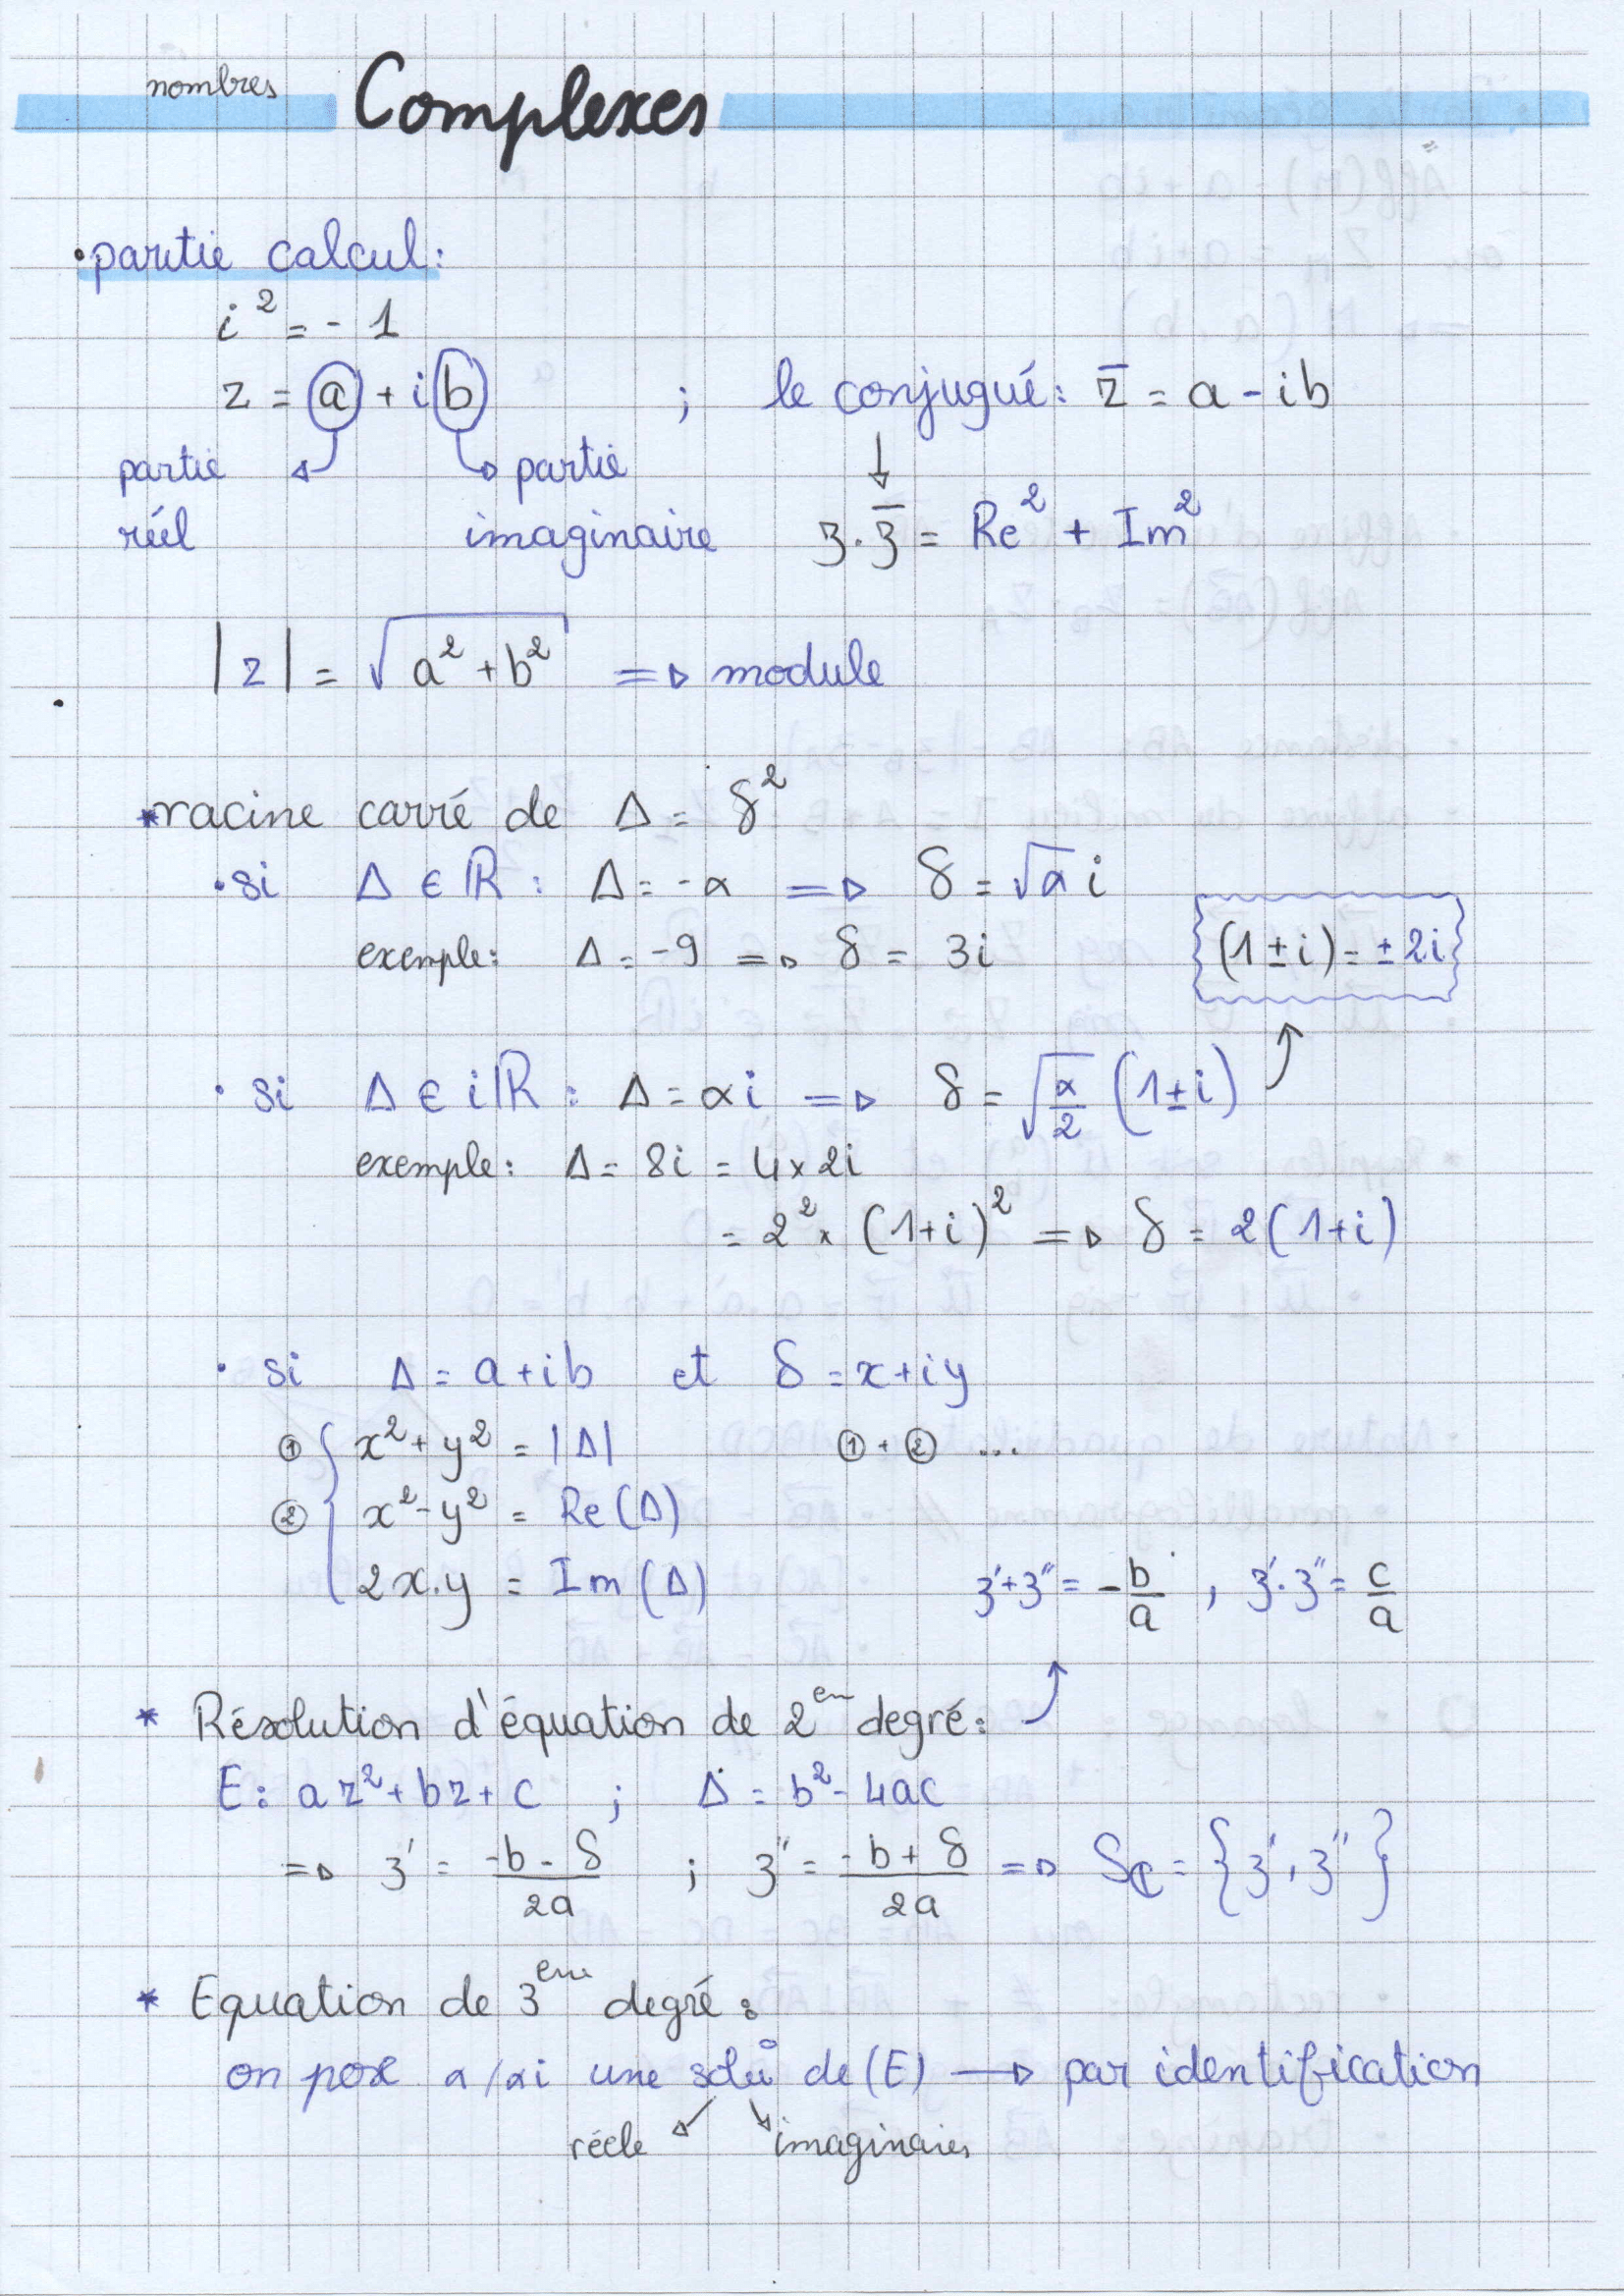 nombres Complexes
• partie calcul:
i² = - 1
z = a + i b ; le conjugué: z̄ = a - ib
partie partie
réel imaginaire z . z̄ = Re² + Im²
|z| = √(a² + b²) => module
* racine carré de Δ = δ²
• si Δ ∈ ℝ : Δ = -α => δ = √α i
exemple: Δ = -9 => δ = 3i
(1 ± i) = ± 2i
• si Δ ∈ iℝ : Δ = αi => δ = √(α/2) (1 ± i)
exemple: Δ = 8i = 4 x 2i
= 2² x (1+i)² => δ = 2(1+i)
• si Δ = a + ib et δ = x + iy
① { x² + y² = |Δ| ① + ② ...
② x² - y² = Re(Δ)
2x.y = Im(Δ)
z' + z'' = - b/a , z' . z'' = c/a
* Résolution d'équation de 2em degré:
E: az² + bz + c ; Δ = b² - 4ac
=> z' = (-b - δ)/2a ; z'' = (-b + δ)/2a => Sℂ = {z', z''}
* Equation de 3em degré :
on pose α/αi une solu° de (E) → par identification
réele imaginaires